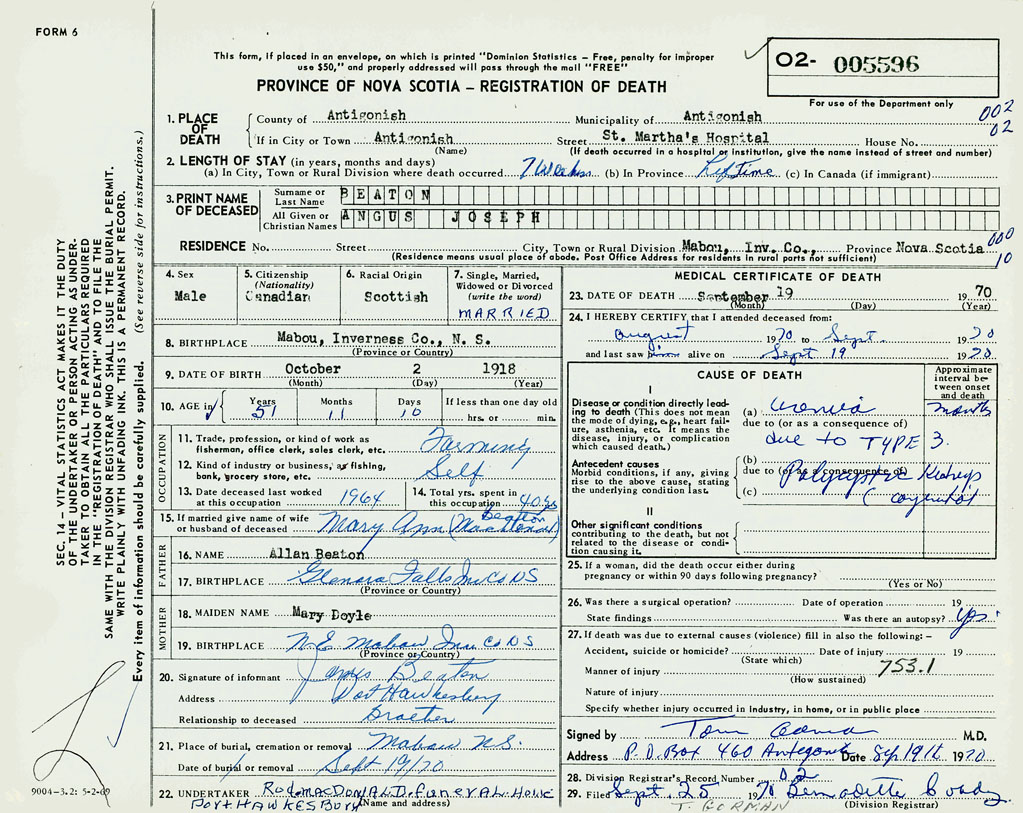 FORM 6
This form, if placed in an envelope, on which is printed "Dominion Statistics – Free, penalty for improper
use $50," and properly addressed will pass through the mail "FREE"
O2- 005596
For use of the Department only
PROVINCE OF NOVA SCOTIA – REGISTRATION OF DEATH
002
02
1. PLACE OF DEATH
County of Antigonish Municipality of Antigonish
If in City or Town Antigonish Street St. Martha's Hospital House No.
(Name) (If death occurred in a hospital or institution, give the name instead of street and number)
2. LENGTH OF STAY (in years, months and days)
(a) In City, Town or Rural Division where death occurred 7 Weeks (b) In Province LifeTime (c) In Canada (if immigrant)
3. PRINT NAME OF DECEASED
Surname or Last Name BEATON
All Given or Christian Names ANGUS JOSEPH
RESIDENCE No. Street City, Town or Rural Division Mabou, Inv. Co., Province Nova Scotia
000
10
(Residence means usual place of abode. Post Office Address for residents in rural parts not sufficient)
4. Sex
Male
5. Citizenship
(Nationality)
Canadian
6. Racial Origin
Scottish
7. Single, Married,
Widowed or Divorced
(write the word)
MARRIED
8. BIRTHPLACE Mabou, Inverness Co., N. S.
(Province or Country)
9. DATE OF BIRTH October 2 1918
(Month) (Day) (Year)
10. AGE in
Years 51
Months 11
Days
If less than one day old
hrs. or min.
OCCUPATION
11. Trade, profession, or kind of work as
fisherman, office clerk, sales clerk, etc. Farming
12. Kind of industry or business, as fishing,
bank, grocery store, etc. Self
13. Date deceased last worked
at this occupation 1964
14. Total yrs. spent in
this occupation 40 yrs
15. If married give name of wife
or husband of deceased Mary Ann Beaton
FATHER
16. NAME Allan Beaton
17. BIRTHPLACE Glenora Falls Inv Co NS
(Province or Country)
MOTHER
18. MAIDEN NAME Mary Doyle
19. BIRTHPLACE N.E. Mabou Inv Co NS
(Province or Country)
20. Signature of informant James Beaton
Address Port Hawkesbury
Relationship to deceased Brother
21. Place of burial, cremation or removal Mabou N.S.
Date of burial or removal Sept 19/70
22. UNDERTAKER Rod. MacDONALD. FUNERAL. HOME
PORT HAWKESBURY
(Name and address)
MEDICAL CERTIFICATE OF DEATH
23. DATE OF DEATH September 19 1970
(Month) (Day) (Year)
24. I HEREBY CERTIFY that I attended deceased from:
August 1970 to Sept. 1970
and last saw him alive on Sept 19 1970
CAUSE OF DEATH
Approximate
interval be-
tween onset
and death
I
Disease or condition directly lead-
ing to death (This does not mean
the mode of dying, e.g., heart fail-
ure, asthenia, etc. It means the
disease, injury, or complication
which caused death.)
(a) Uremia months
due to (or as a consequence of)
due to TYPE 3.
Antecedent causes
Morbid conditions, if any, giving
rise to the above cause, stating
the underlying condition last.
(b)
due to (or as a consequence of)
Polycystic Kidneys
(c) (congenital)
II
Other significant conditions
contributing to the death, but not
related to the disease or condi-
tion causing it.
25. If a woman, did the death occur either during
pregnancy or within 90 days following pregnancy?
(Yes or No)
26. Was there a surgical operation? Date of operation 19
State findings Was there an autopsy? yes
27. If death was due to external causes (violence) fill in also the following: –
Accident, suicide or homicide? Date of injury 19
(State which)
Manner of injury 753.1
(How sustained)
Nature of injury
Specify whether injury occurred in industry, in home, or in public place
Signed by Tom M.D.
Address P.O. Box 460 Antigonish Date Sep 19th 1970
28. Division Registrar's Record Number 02
29. Filed Sept. 25 1970 Bernadette
(Division Registrar)
T. GORMAN
SEC. 14 – VITAL STATISTICS ACT MAKES IT THE DUTY
OF THE UNDERTAKER OR PERSON ACTING AS UNDER-
TAKER TO OBTAIN ALL THE PARTICULARS REQUIRED
IN THE "REGISTRATION OF DEATH" AND TO FILE THE
SAME WITH THE DIVISION REGISTRAR WHO SHALL ISSUE THE BURIAL PERMIT.
WRITE PLAINLY WITH UNFADING INK. THIS IS A PERMANENT RECORD.
Every item of information should be carefully supplied. (See reverse side for instructions.)
9004–3.2: 5-2-69